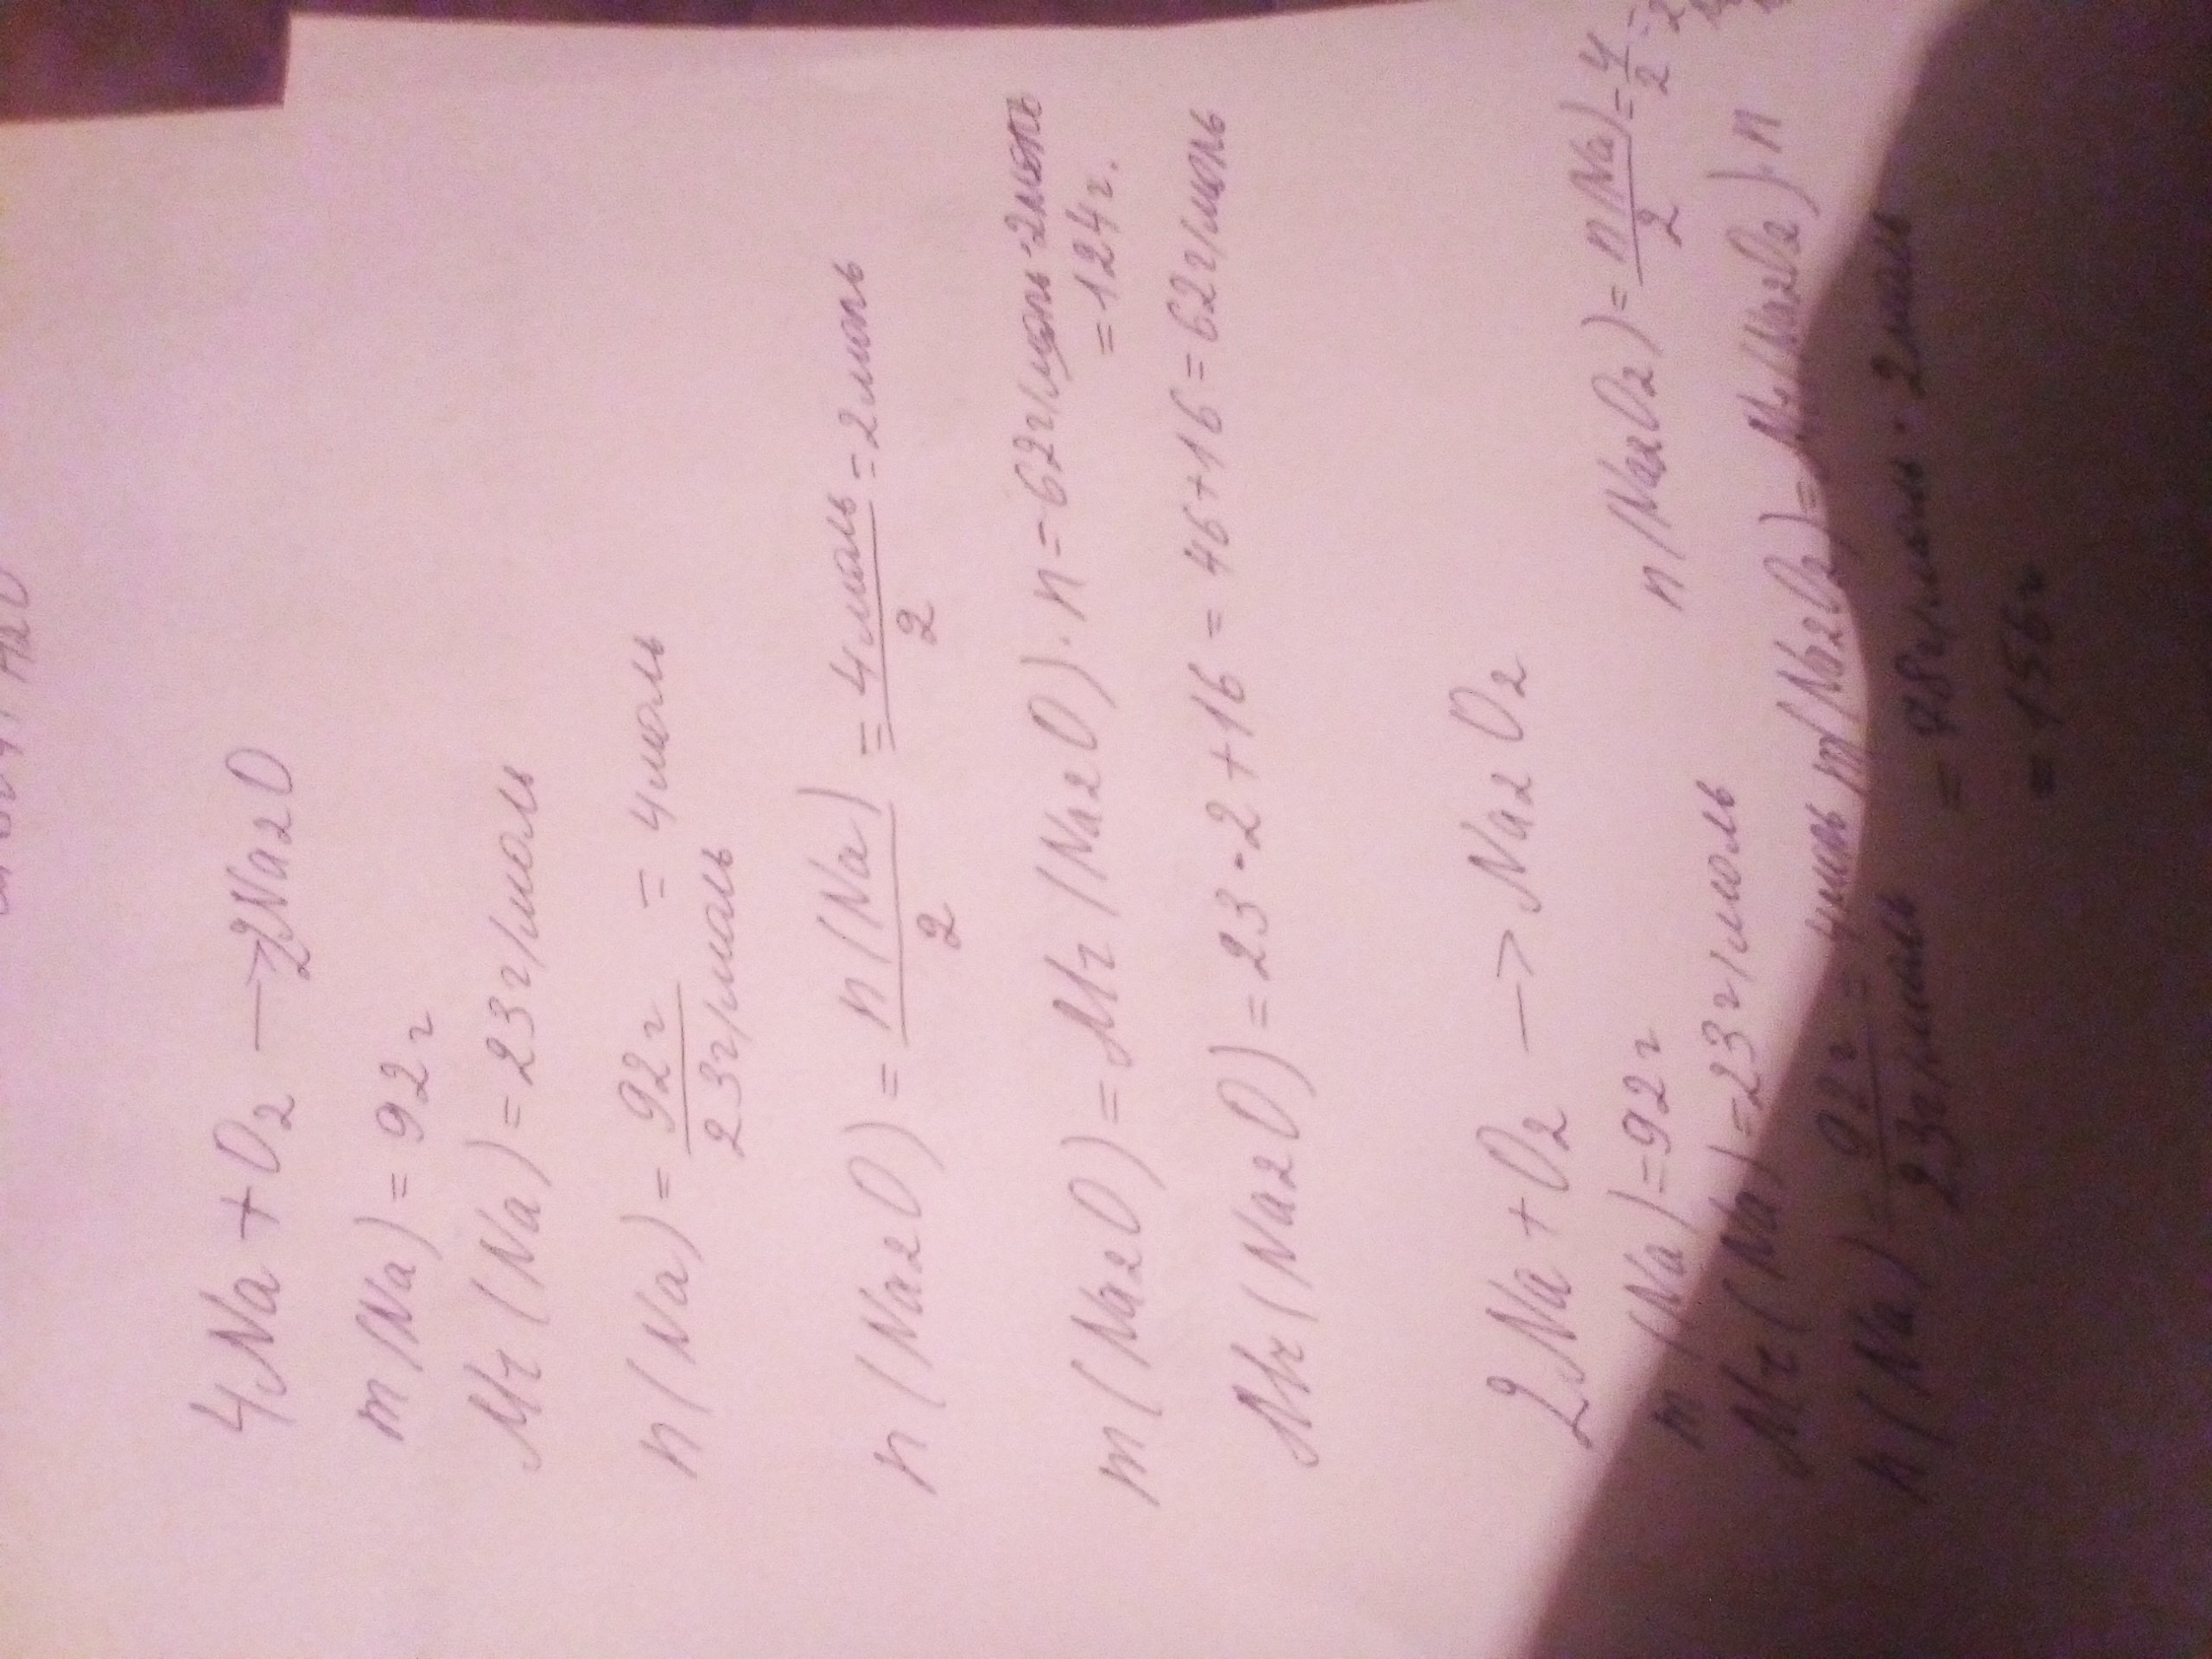 4Na + O2 → 2Na2O
m(Na) = 92 г
Mr(Na) = 23 г/моль
n(Na) = 92 г / 23 г/моль = 4 моль
n(Na2O) = n(Na) / 2 = 4 моль / 2 = 2 моль
m(Na2O) = Mr(Na2O) · n = 62 г/моль · 2 моль
= 124 г.
Mr(Na2O) = 23 · 2 + 16 = 46 + 16 = 62 г/моль
2Na + O2 → Na2O2
m(Na) = 92 г
n(Na2O2) = n(Na) / 2 = 4 / 2 = 2
Mr(Na) = 23 г/моль
n(Na) = 92 г / 23 г/моль = 4 моль
m(Na2O2) = Mr(Na2O2) · n
= 78 г/моль · 2 моль
= 156 г